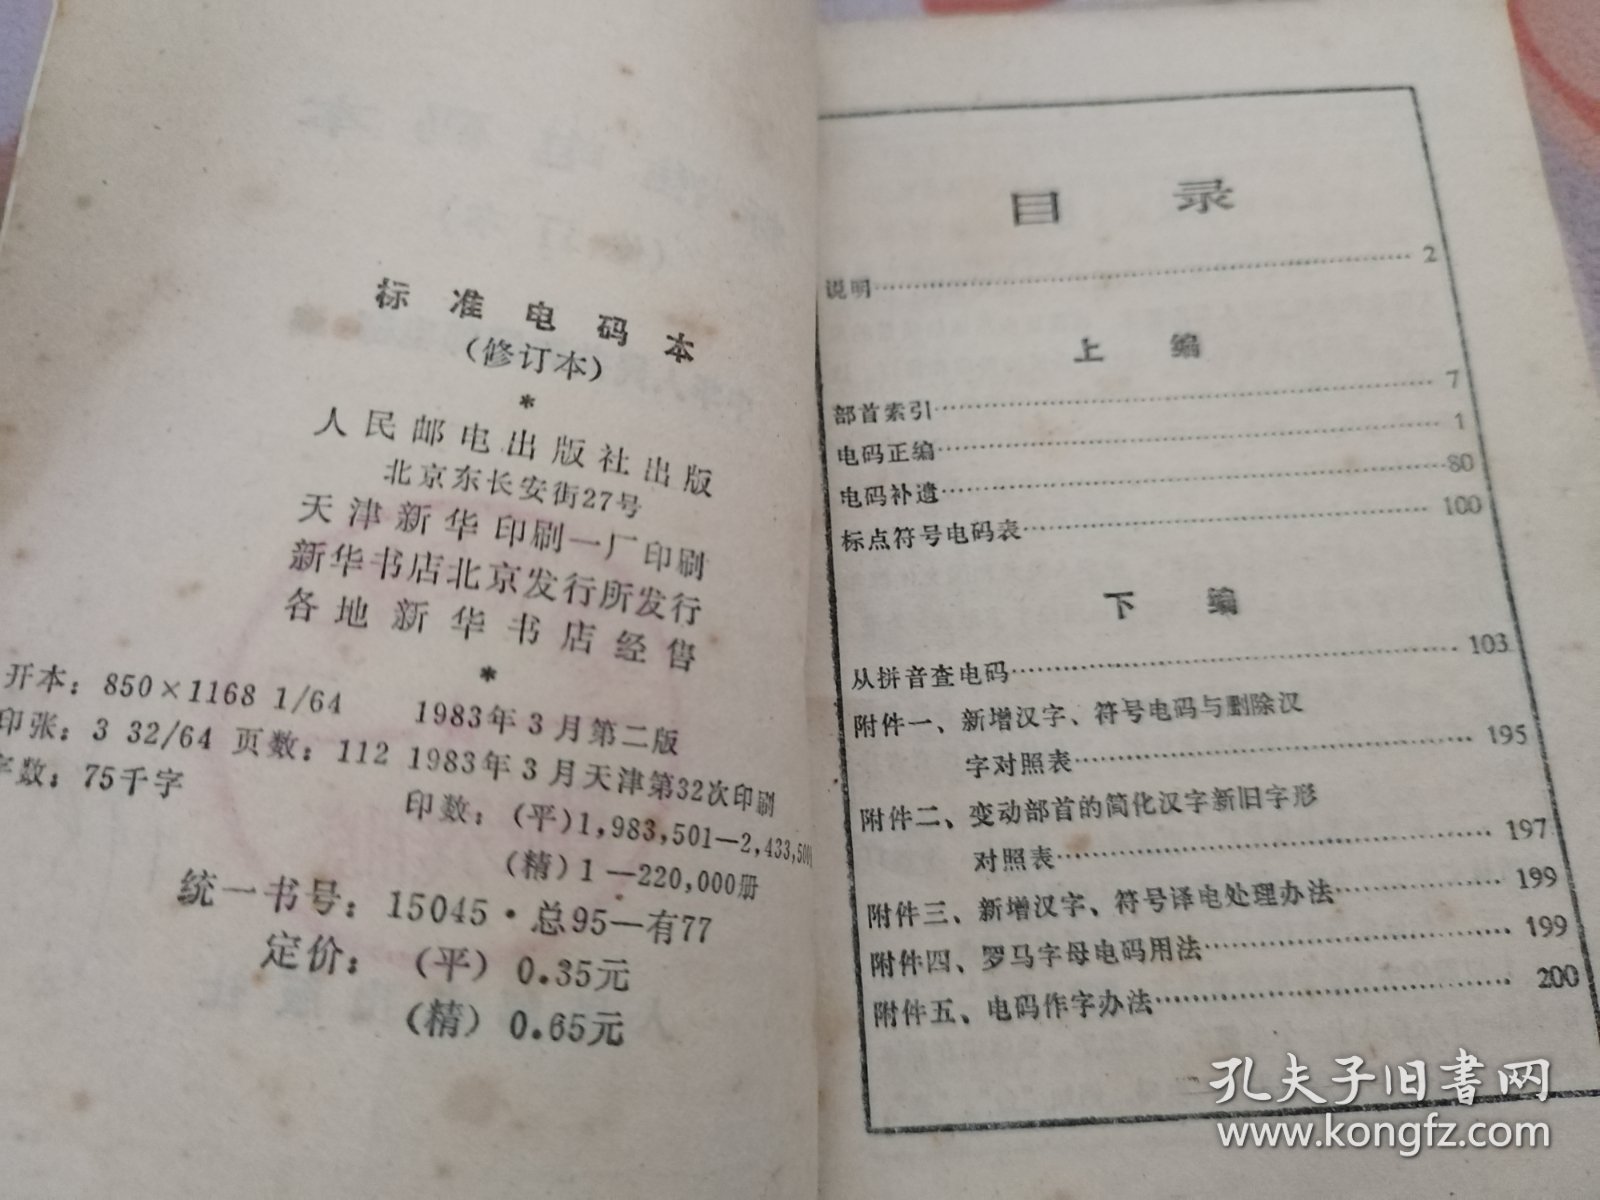 标准电码本
(修订本)
*
人民邮电出版社出版
北京东长安街27号
天津新华印刷一厂印刷
新华书店北京发行所发行
各地新华书店经售
*
开本：850×1168 1/64
1983年3月第二版
印张：3 32/64 页数：112
1983年3月天津第32次印刷
字数：75千字
印数：(平)1,983,501—2,433,500
(精)1—220,000册
统一书号：15045·总95—有77
定价：(平) 0.35元
(精) 0.65元
目录
说明……2
上编
部首索引……7
电码正编……1
电码补遗……80
标点符号电码表……100
下编
从拼音查电码……103
附件一、新增汉字、符号电码与删除汉
字对照表……195
附件二、变动部首的简化汉字新旧字形
对照表……197
附件三、新增汉字、符号译电处理办法……199
附件四、罗马字母电码用法……199
附件五、电码作字办法……200
孔夫子旧书网
www.kongfz.com